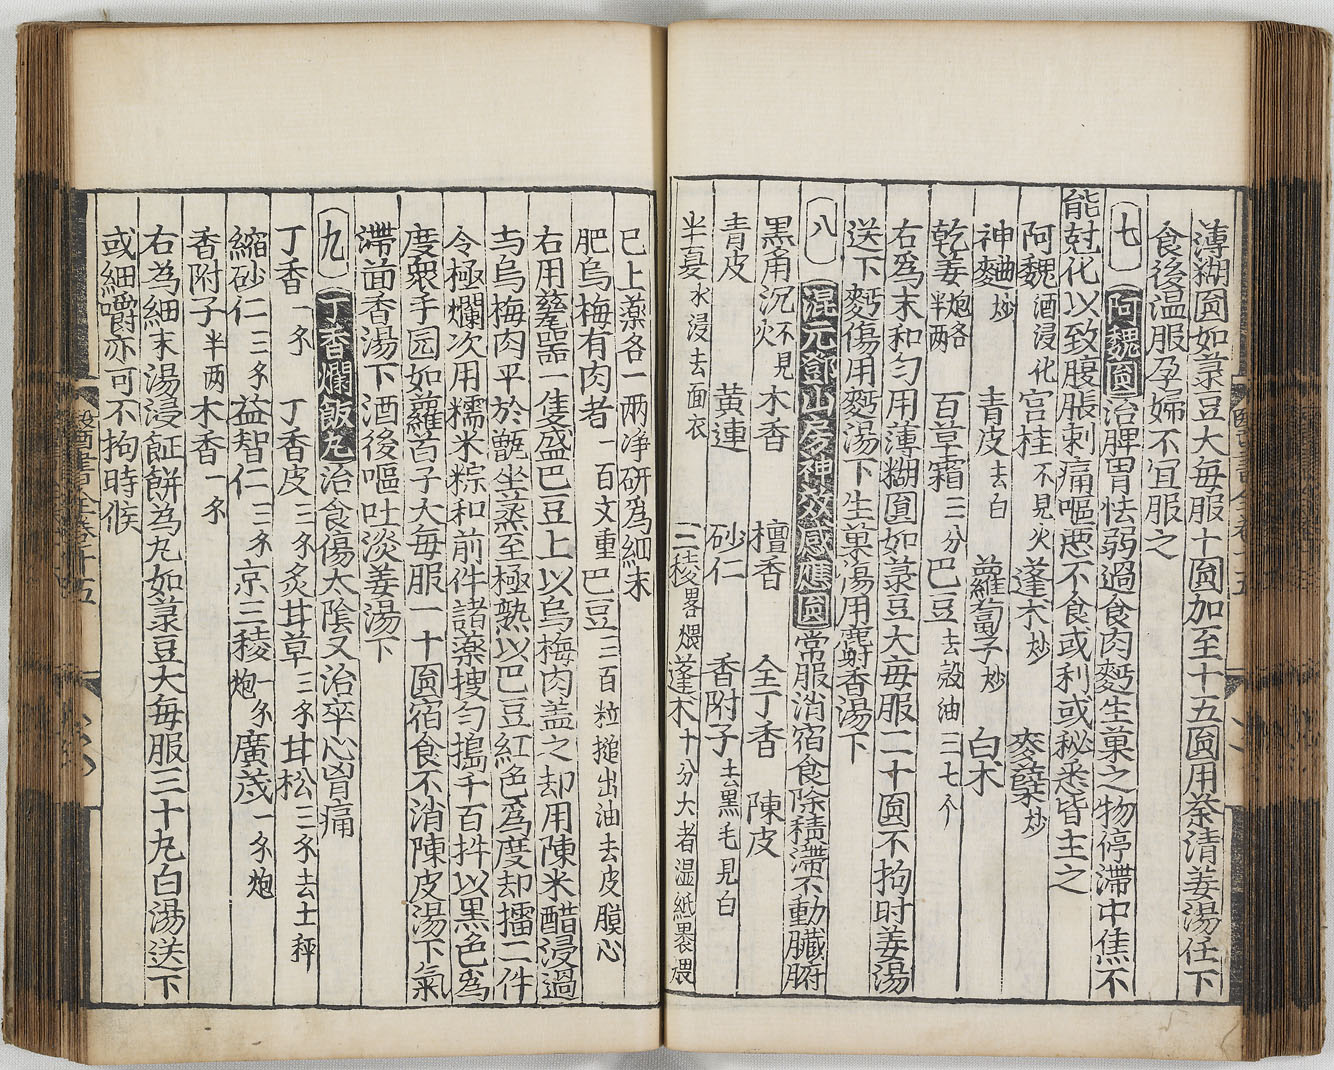 薄糊圓如菉豆大每服十圓加至十五圓用茶清姜湯任下
食後温服孕婦不宜服之
七 阿魏圓 治脾胃怯弱過食肉麪生菓之物停滯中焦不
能尅化以致腹脹刺痛嘔惡不食或利或秘悉皆主之
阿魏 酒浸化 官桂 不見火 蓬朮 炒 麥蘖 炒
神麯 炒 青皮 去白 蘿蔔子 炒 白朮
乾姜 炮各半两 百草霜 三分 巴豆 去殼油三七个
右爲末和勻用薄糊圓如菉豆大每服二十圓不拘时姜湯
送下麪傷用麪湯下生菓傷用麝香湯下
八 混元鄧山房神效感應圓 常服消宿食除積滯不動臟腑
黑角沉 不見火 木香 檀香 全丁香 陳皮
青皮 黄連 砂仁 香附子 去黑毛見白
半夏 水浸去面衣 三稜 畧煨 蓬朮 十分大者湿紙裹煨
已上藥各一两净研爲細末
肥烏梅有肉者 一百文重 巴豆 三百粒搥出油去皮膜心
右用甆噐一隻盛巴豆上以烏梅肉盖之却用陳米醋浸過
与烏梅肉平於甑坐蒸至極熟以巴豆紅色爲度却擂二件
令極爛次用糯米粽和前件諸藥搜勻搗千百抖以黑色爲
度衆手园如蘿蔔子大每服一十圓宿食不消陳皮湯下氣
滯茴香湯下酒後嘔吐淡姜湯下
九 丁香爛飯丸 治食傷太陰又治卒心胷痛
丁香 一爻 丁香皮 三爻 炙甘草 三爻 甘松 三爻去土秤
縮砂仁 三爻 益智仁 三爻 京三稜 一爻炮 廣茂 一爻炮
香附子 半两 木香 一爻
右為細末湯浸䭀餅為丸如菉豆大每服三十丸白湯送下
或細嚼亦可不拘時候